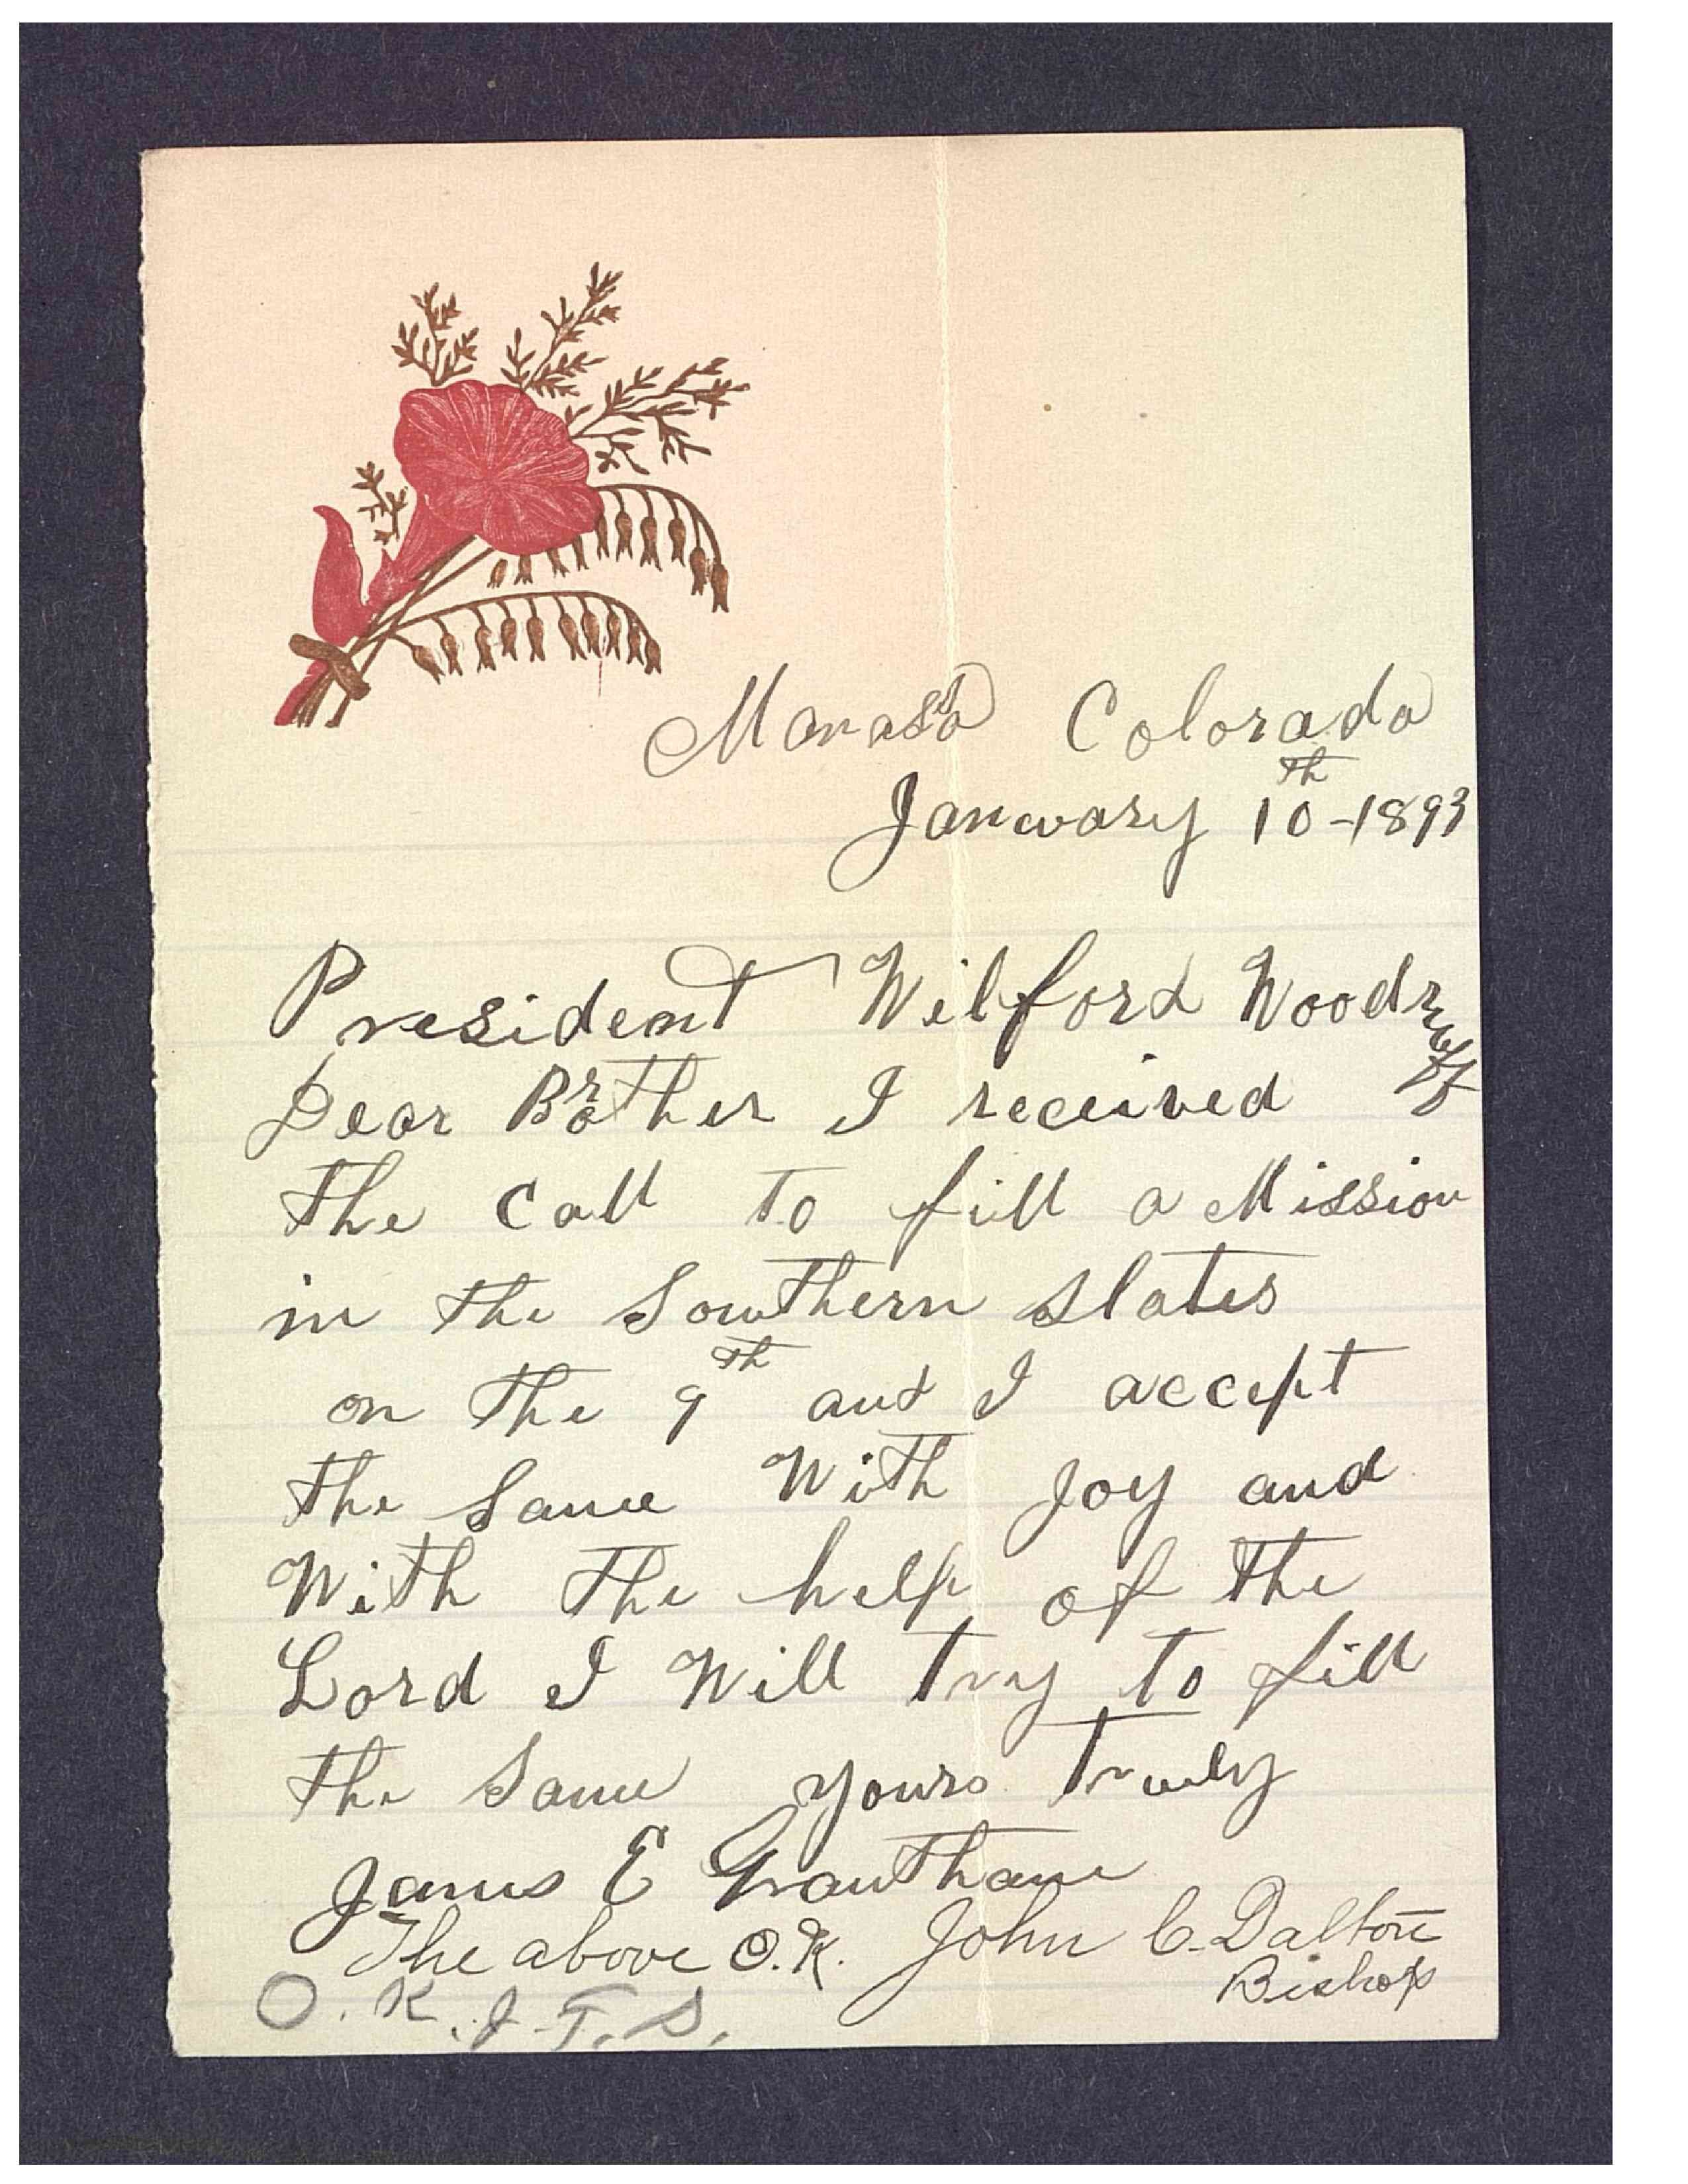 Manassa Colorado
January 10th-1893
President Wilford Woodruff
Dear Brother I received
the call to fill a Mission
in the Southern States
on the 9th and I accept
the same With Joy and
With the help of the
Lord I Will try to fill
the same yours truly
James E Grantham
The above O.K. John C. Dalton
Bishop
O.K. J.F.S.